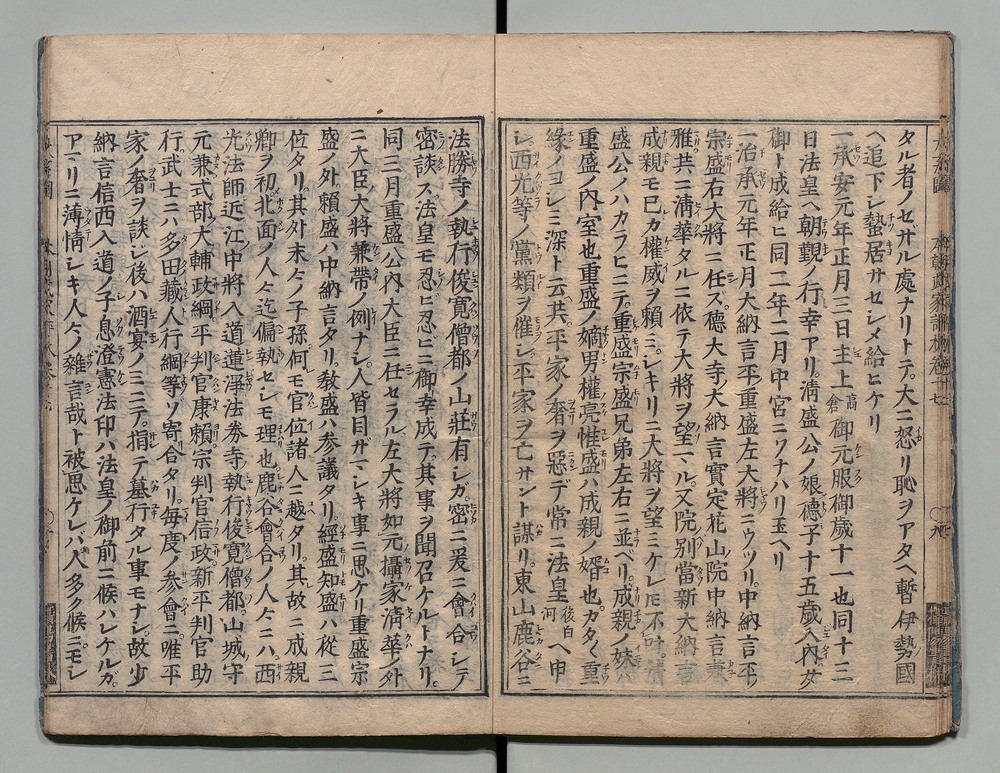 タル者ノセザル處ナリトテ。大ニ怒リ恥ヲアタヘ暫伊勢國
ヘ追下シ蟄居サセシメ給ヒケリ
一承安元年正月三日主上高倉御元服御歳十一也同十三
日法皇ヘ朝覲ノ行幸アリ。清盛公ノ娘德子十五歳入內女
御ト成給ヒ同二年二月中宮ニソナハリ玉ヘリ
一治承元年正月大納言平重盛左大將ニウツリ。中納言平
宗盛右大將ニ任ス德大寺大納言實定花山院中納言兼
雅共ニ淸華タルニ依テ大將ヲ望マル。又院別當新大納言
成親モ已カ權威ヲ賴ミ。シキリニ大將ヲ望ミケレ𪜈不叶淸
盛公ノハカラヒニテ。重盛宗盛兄弟左右ニ並ベリ。成親ノ妹ハ
重盛ノ內室也重盛ノ嫡男權亮惟盛ハ成親ノ婿也。カタ〱重
緣ノヨシミ深ト云共。平家ノ奢ヲ惡デ常ニ法皇後白河ヘ申
シ。西光等ノ黨類ヲ催シ。平家ヲ亡サント謀リ。東山鹿谷ニ
法勝寺ノ執行俊寛僧都ノ山莊有シガ。密ニ爰ニ會合シテ
密談ス法皇モ忍ビ忍ビニ御幸成テ。其事ヲ聞召ケルトナリ。
同三月重盛公內大臣ニ任セラル左大將如元攝家淸華ノ外
ニ大臣ノ大將兼帶ノ例ナシ。人皆目ザマシキ事ニ思ケリ重盛宗
盛ノ外。賴盛ハ中納言タリ。敎盛ハ參議タリ。經盛知盛ハ從三
位タリ。其外末々ノ子孫何モ官位諸人ニ越タリ。其故ニ成親
卿ヲ初。北面ノ人々迄偏執セシモ理也鹿谷會合ノ人々ニハ。西
光法師近江中將入道蓮淨法勝寺執行俊寛僧都。山城守
元兼式部大輔政綱平判官康賴宗判官信政新平判官助
行武士ニハ多田藏人行綱等ソ寄合タリ。毎度ノ參會ニ唯平
家ノ奢ヲ談シ後ハ酒宴ノミニテ。捐テ墓行タル事モナシ。故少
納言信西入道ノ子息澄憲法印ハ法皇ノ御前ニ候ハレケルガ。
アマリニ薄情シキ人々ノ雜言哉ト被思ケレバ人多ク候ニモシ